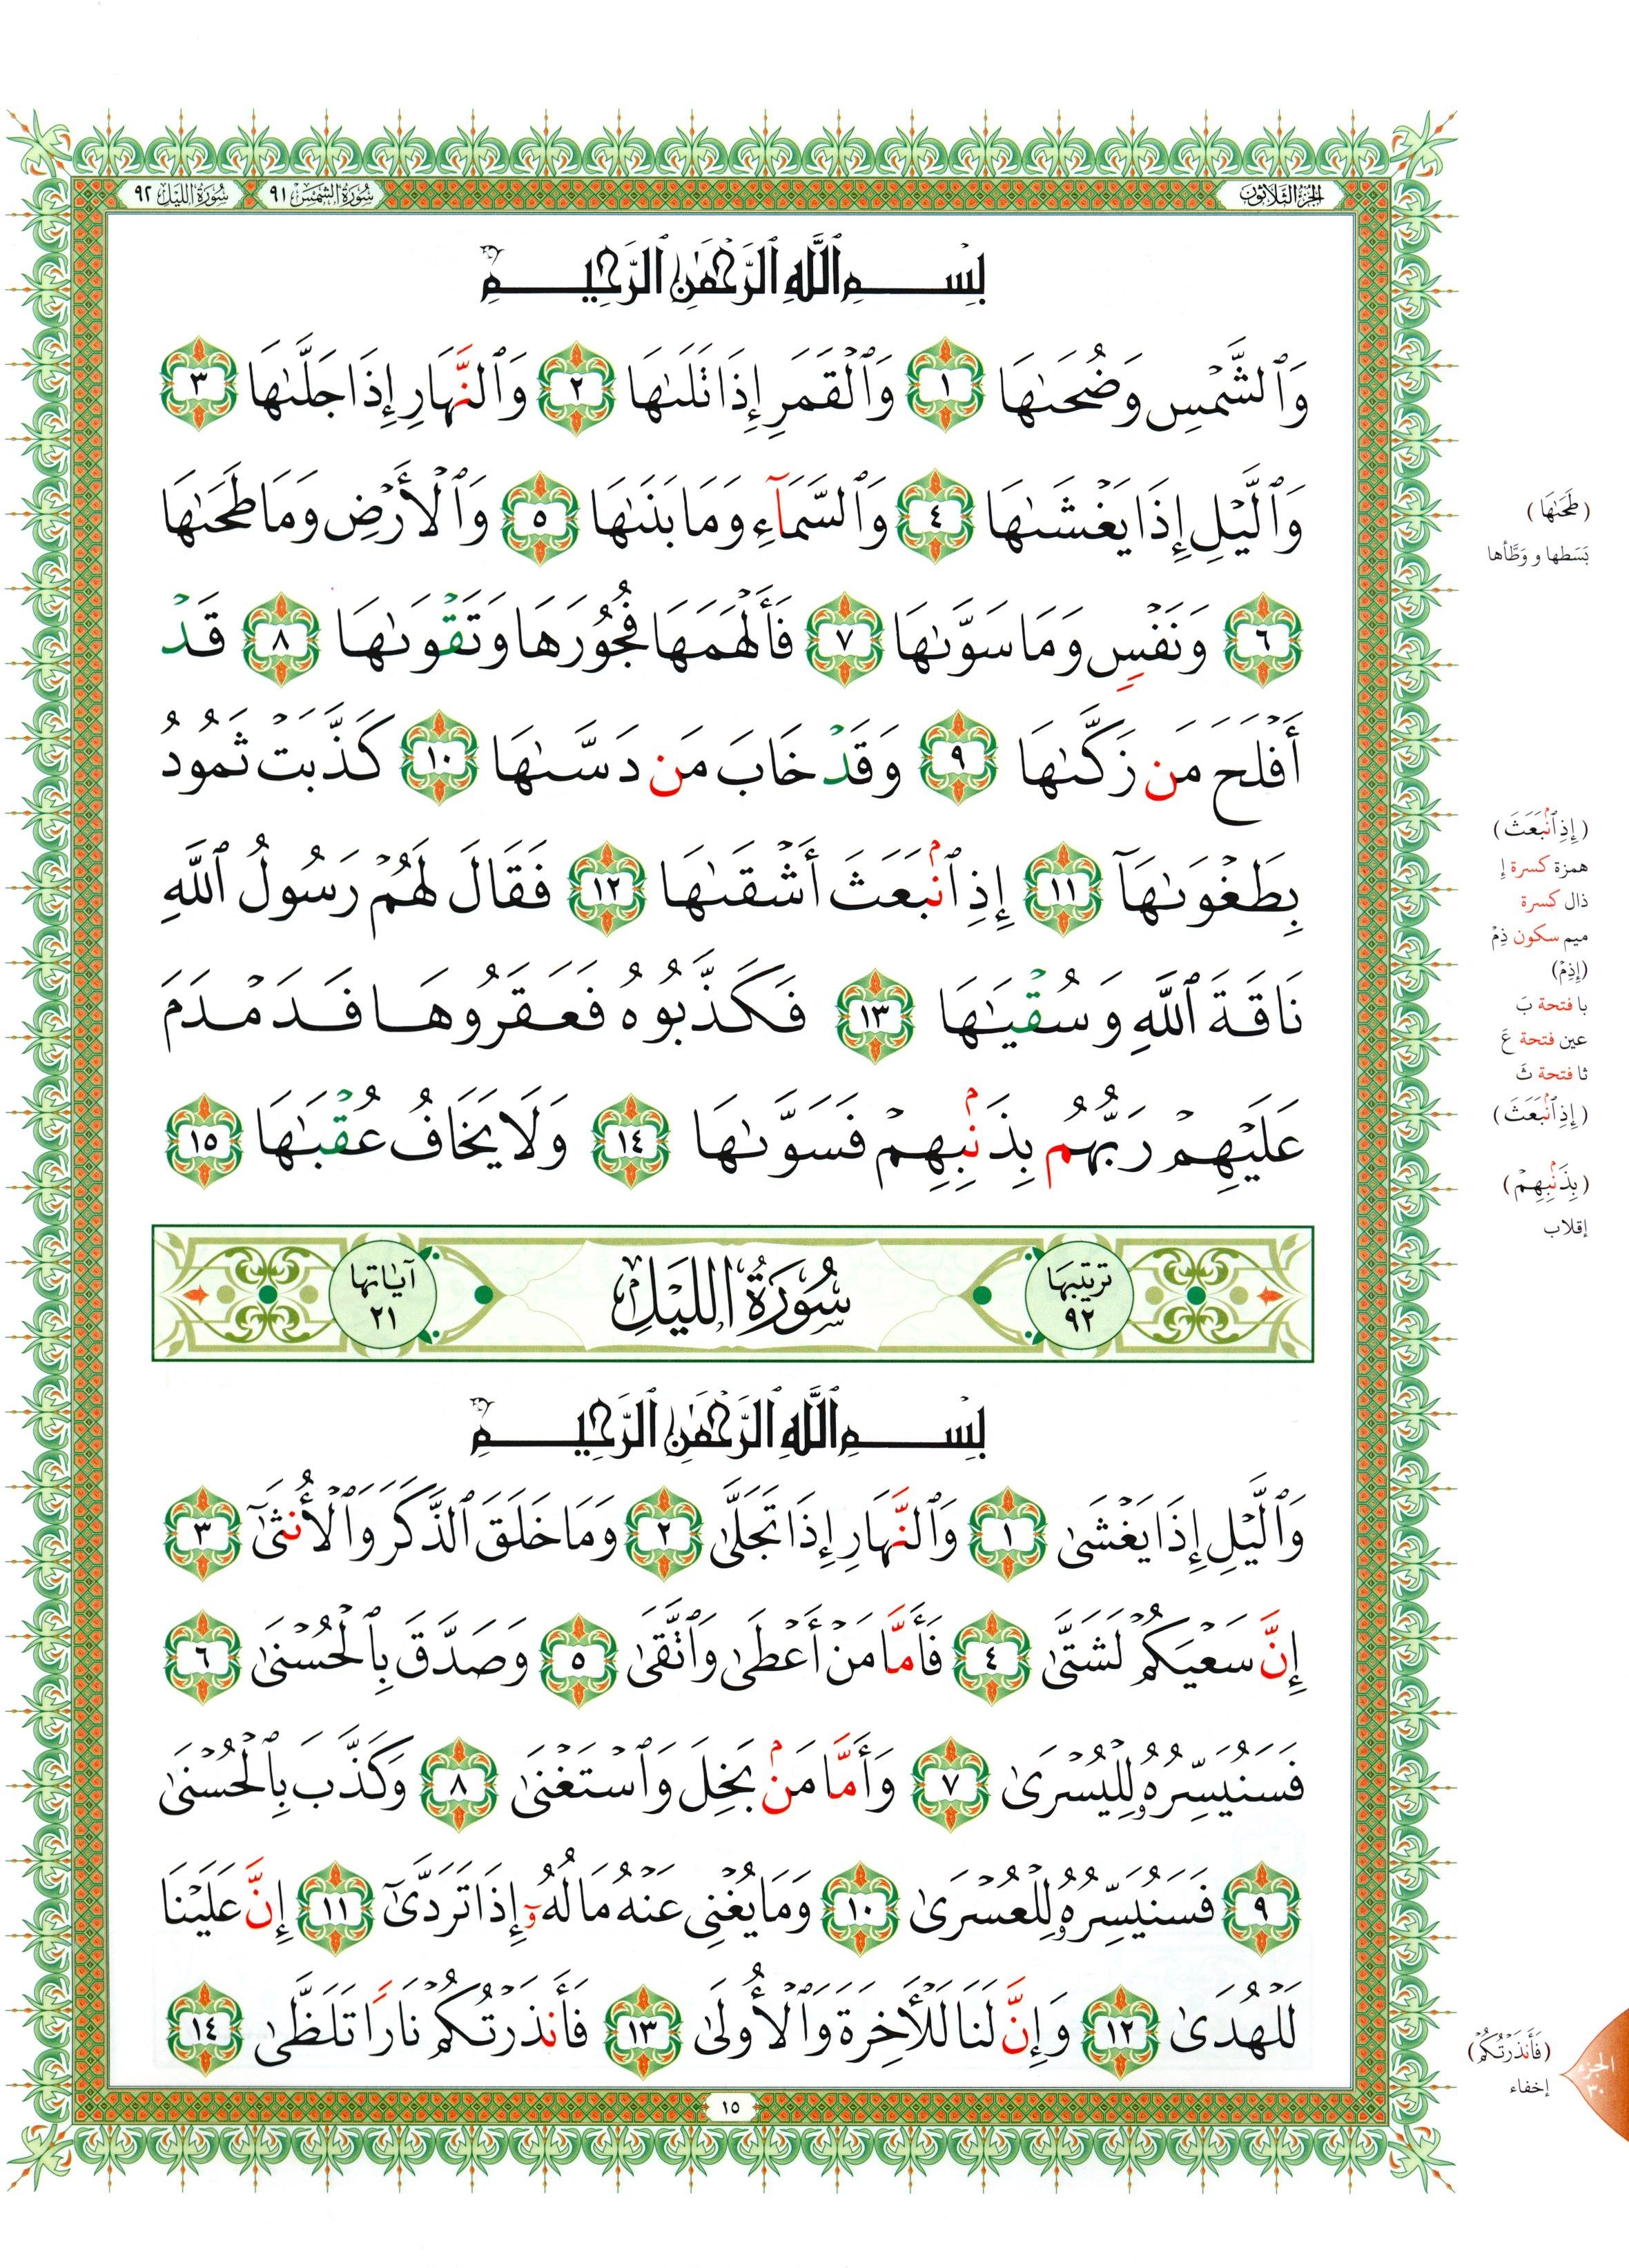 الجزء الثلاثون
سورة الشمس ٩١
سورة الليل ٩٢
بِسْمِ ٱللَّهِ ٱلرَّحْمَٰنِ ٱلرَّحِيمِ
وَٱلشَّمْسِ وَضُحَىٰهَا ١ وَٱلْقَمَرِ إِذَا تَلَىٰهَا ٢ وَٱلنَّهَارِ إِذَا جَلَّىٰهَا ٣
وَٱلَّيْلِ إِذَا يَغْشَىٰهَا ٤ وَٱلسَّمَآءِ وَمَا بَنَىٰهَا ٥ وَٱلْأَرْضِ وَمَا طَحَىٰهَا
٦ وَنَفْسٍ وَمَا سَوَّىٰهَا ٧ فَأَلْهَمَهَا فُجُورَهَا وَتَقْوَىٰهَا ٨ قَدْ
أَفْلَحَ مَن زَكَّىٰهَا ٩ وَقَدْ خَابَ مَن دَسَّىٰهَا ١٠ كَذَّبَتْ ثَمُودُ
بِطَغْوَىٰهَآ ١١ إِذِ ٱنۢبَعَثَ أَشْقَىٰهَا ١٢ فَقَالَ لَهُمْ رَسُولُ ٱللَّهِ
نَاقَةَ ٱللَّهِ وَسُقْيَٰهَا ١٣ فَكَذَّبُوهُ فَعَقَرُوهَا فَدَمْدَمَ
عَلَيْهِمْ رَبُّهُم بِذَنۢبِهِمْ فَسَوَّىٰهَا ١٤ وَلَا يَخَافُ عُقْبَٰهَا ١٥
ترتيبها ٩٢ سُورَةُ الليْلِ آياتها ٢١
بِسْمِ ٱللَّهِ ٱلرَّحْمَٰنِ ٱلرَّحِيمِ
وَٱلَّيْلِ إِذَا يَغْشَىٰ ١ وَٱلنَّهَارِ إِذَا تَجَلَّىٰ ٢ وَمَا خَلَقَ ٱلذَّكَرَ وَٱلْأُنثَىٰٓ ٣
إِنَّ سَعْيَكُمْ لَشَتَّىٰ ٤ فَأَمَّا مَنْ أَعْطَىٰ وَٱتَّقَىٰ ٥ وَصَدَّقَ بِٱلْحُسْنَىٰ ٦
فَسَنُيَسِّرُهُۥ لِلْيُسْرَىٰ ٧ وَأَمَّا مَنۢ بَخِلَ وَٱسْتَغْنَىٰ ٨ وَكَذَّبَ بِٱلْحُسْنَىٰ
٩ فَسَنُيَسِّرُهُۥ لِلْعُسْرَىٰ ١٠ وَمَا يُغْنِى عَنْهُ مَالُهُۥٓ إِذَا تَرَدَّىٰٓ ١١ إِنَّ عَلَيْنَا
لَلْهُدَىٰ ١٢ وَإِنَّ لَنَا لَلْأَخِرَةَ وَٱلْأُولَىٰ ١٣ فَأَنذَرْتُكُمْ نَارًا تَلَظَّىٰ ١٤
١٥
(طَحَىٰهَا)
بَسَطها و وَطَّأها
(إِذِ ٱنۢبَعَثَ)
همزة كسرة إِ
ذال كسرة
ميم سكون ذِمْ
(إِذِمْ)
با فتحة بَ
عين فتحة عَ
ثا فتحة ثَ
(إِذِ ٱنۢبَعَثَ)
(بِذَنۢبِهِمْ)
إقلاب
(فَأَنذَرْتُكُمْ)
إخفاء
الجزء
٣٠